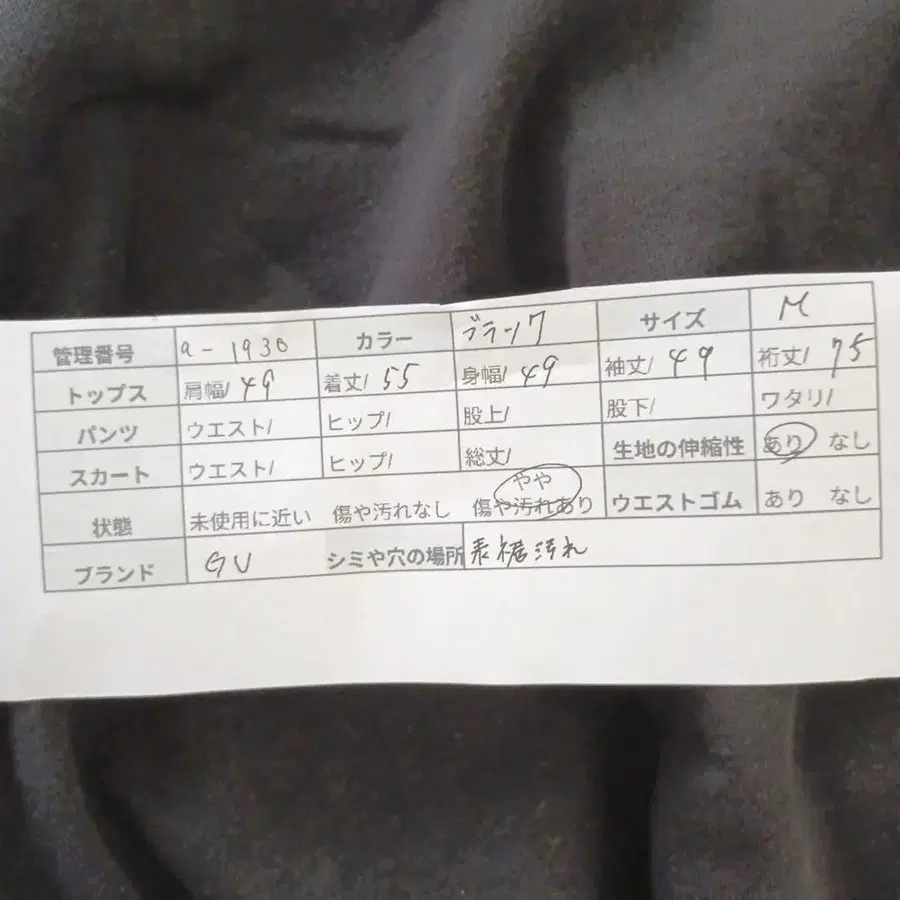 管理番号 a-1930 カラー ブラック サイズ M
トップス 肩幅/ 49 着丈/ 55 身幅/ 49 袖丈/ 49 裄丈/ 75
パンツ ウエスト/ ヒップ/ 股上/ 股下/ ワタリ/
スカート ウエスト/ ヒップ/ 総丈/ 生地の伸縮性 あり なし
やや
状態 未使用に近い 傷や汚れなし 傷や汚れあり ウエストゴム あり なし
ブランド GU シミや穴の場所 表裾汚れ